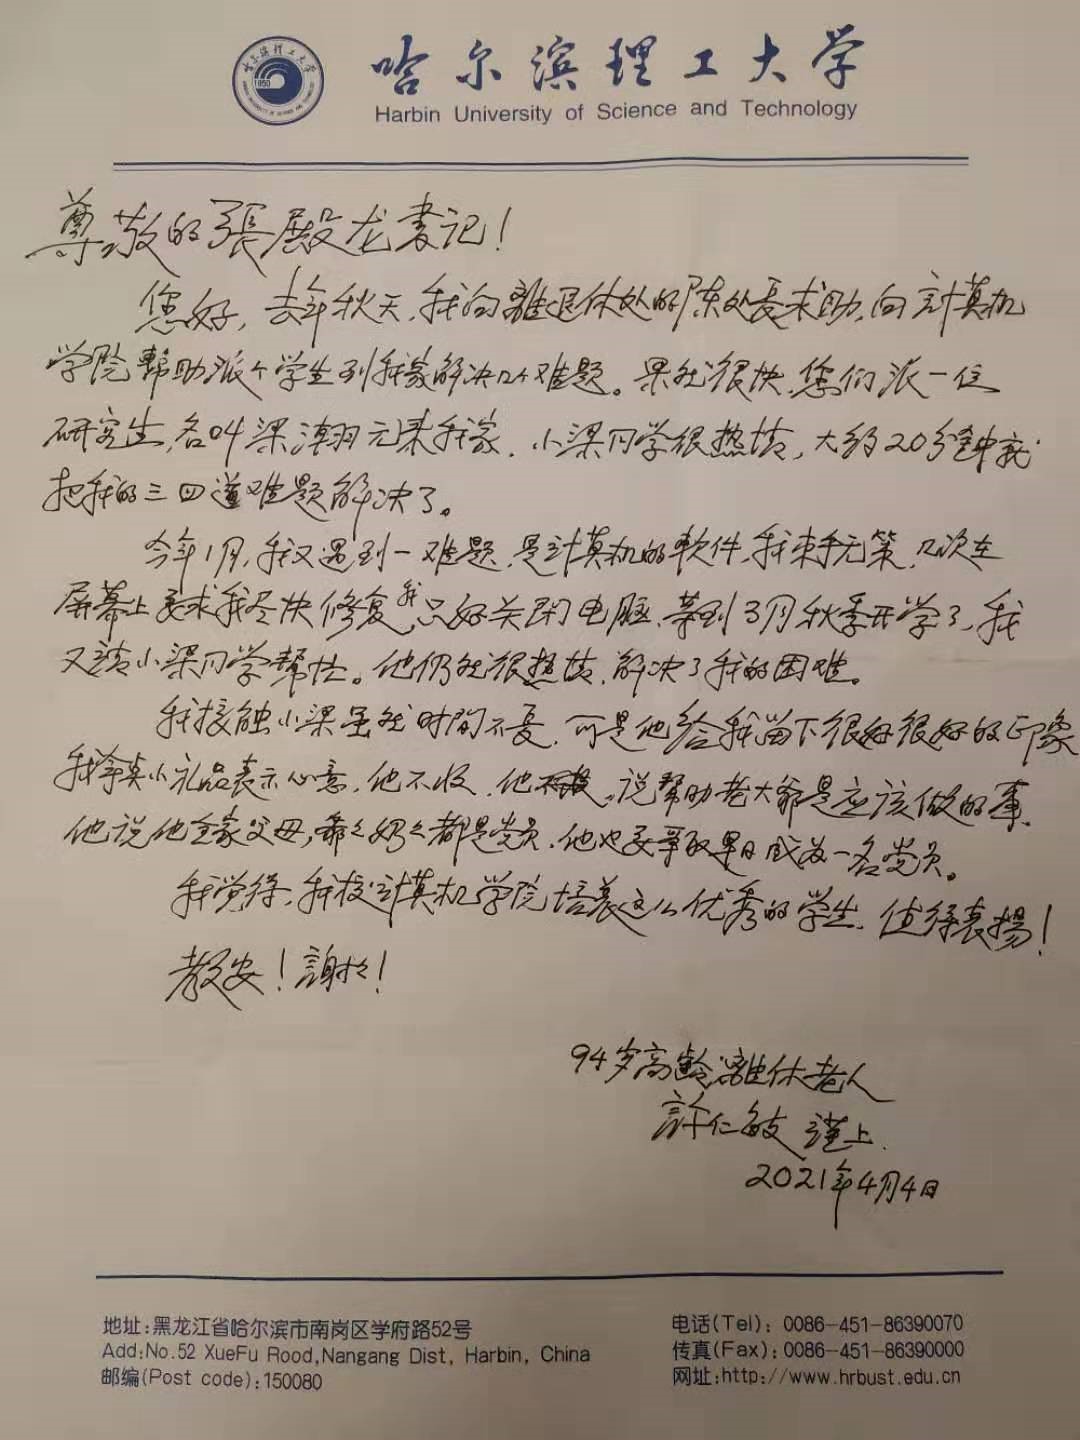 哈尔滨理工大学
Harbin University of Science and Technology
尊敬的張殿龙書记！
您好，去年秋天，我向離退休处的陈处長求助，向計算机
学院幫助派个学生到我家解决几个难题。果然很快，您们派一位
研究生，名叫梁瀚元来我家，小梁同学很热情，大约20分鈡就
把我的三四道难题解决了。
今年1月，我又遇到一难题，是計算机的軟件，我束手无策，几次在
屏幕上要求我尽快修复，我只好关闭电脑，等到3月秋季开学了，我
又請小梁同学幫忙。他仍然很热情，解决了我的困难。
我接触小梁虽然时间不長，可是他给我留下很好很好的印象
我拿其小礼品表示心意，他不收，他。说幫助老大爺是应该做的事，
他说他全家父母，爺々奶々都是党员，他也要争取早日成为一名党员。
我觉得，我校計算机学院培养这么优秀的学生，值得表揚！
教安！謝々！
94岁高齡離休老人
許仁敏 谨上
2021年4月4日
地址:黑龙江省哈尔滨市南岗区学府路52号
Add:No.52 XueFu Rood,Nangang Dist, Harbin, China
邮编(Post code):150080
电话(Tel): 0086-451-86390070
传真(Fax): 0086-451-86390000
网址:http://www.hrbust.edu.cn